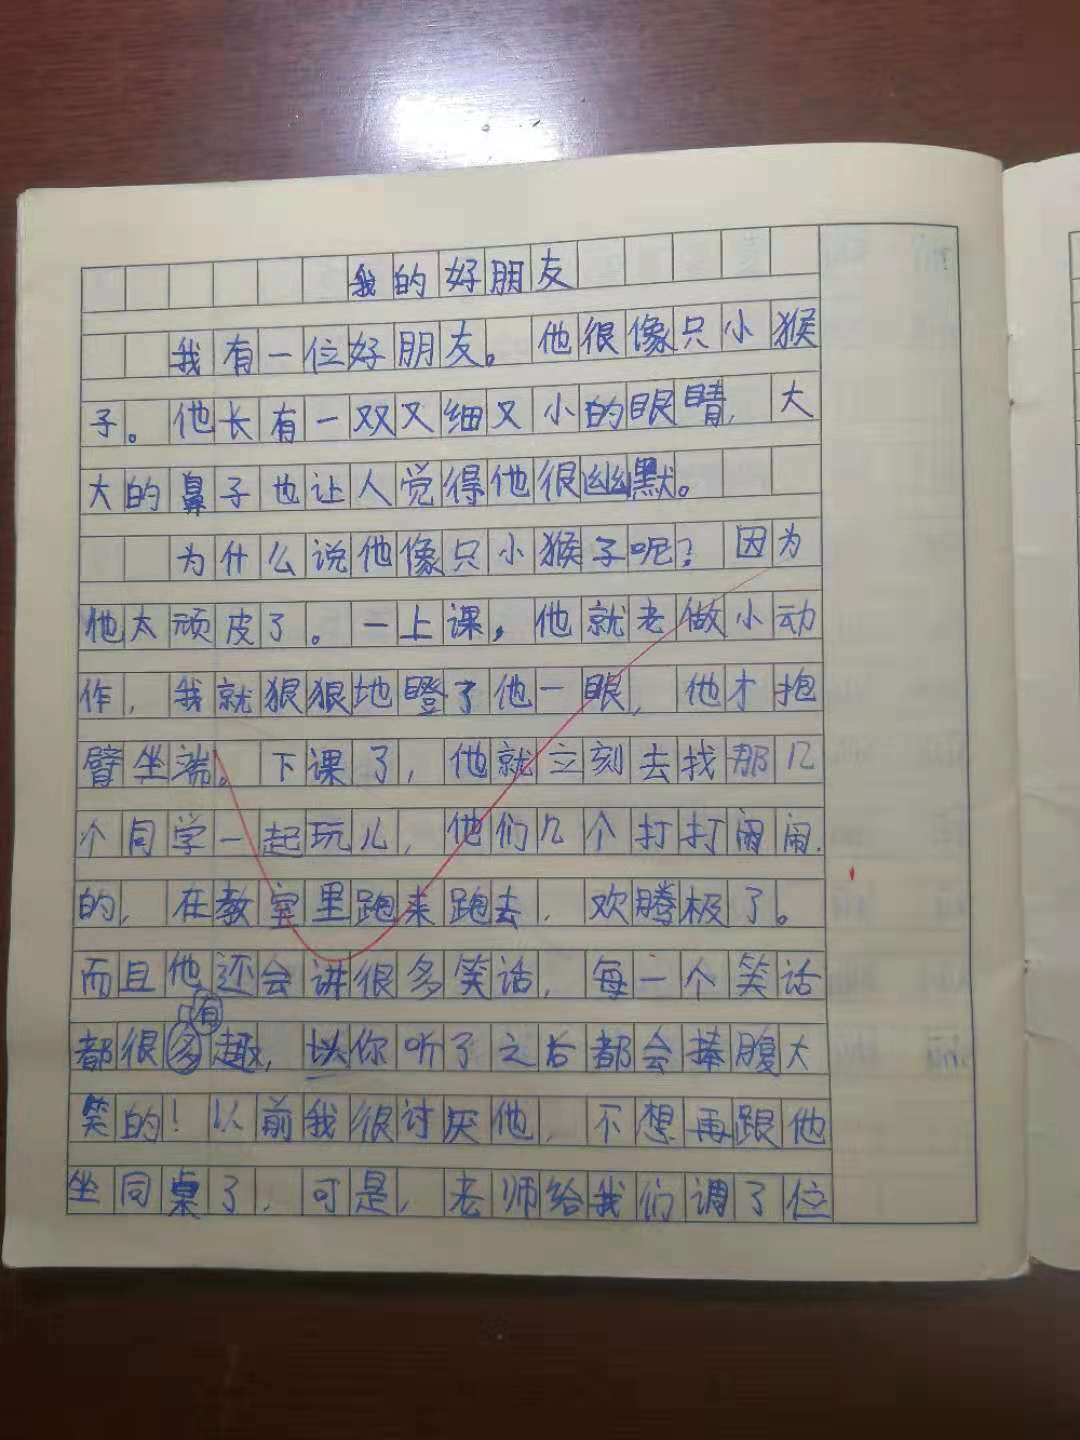 我的好朋友
我有一位好朋友。他很像只小猴
子。他长有一双又细又小的眼睛，大
大的鼻子也让人觉得他很幽默。
为什么说他像只小猴子呢？因为
他太顽皮了。一上课，他就老做小动
作，我就狠狠地瞪了他一眼，他才抱
臂坐端。下课了，他就立刻去找那几
个同学一起玩儿，他们几个打打闹闹
的，在教室里跑来跑去，欢腾极了。
而且他还会讲很多笑话，每一个笑话
都很有趣，以你听了之后都会捧腹大
笑的！以前我很讨厌他，不想再跟他
坐同桌了，可是，老师给我们调了位